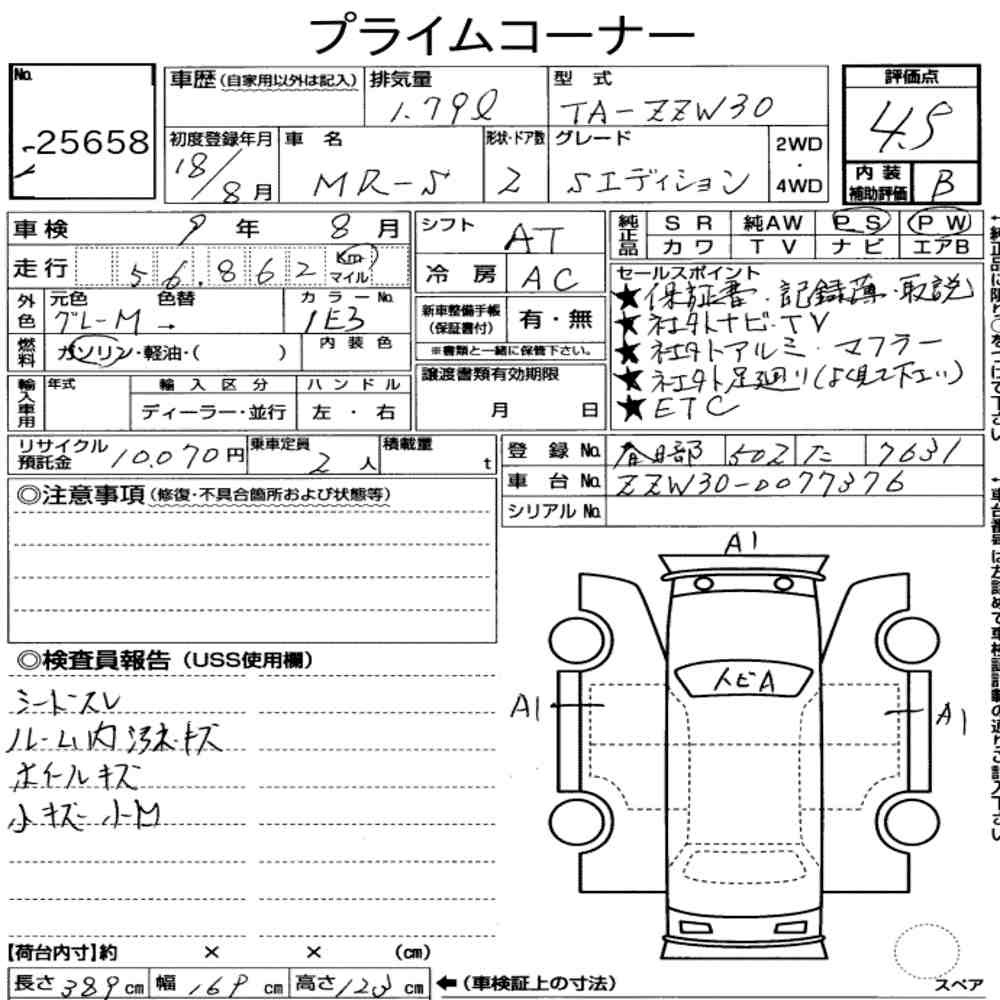 プライムコーナー
No.
25658
車歴(自家用以外は記入)
排気量
1.79ℓ
型式
TA-ZZW30
評価点
4.5
初度登録年月
18/8月
車名
MR-S
形状・ドア数
2
グレード
Sエディション
2WD
・
4WD
内装補助評価
B
車検 9年 8月
シフト
AT
純正品
SR 純AW PS PW
カワ TV ナビ エアB
走行 56,862 Km マイル
冷房
AC
セールスポイント
★保証書・記録簿・取説
★社外ナビ・TV
★社外アルミ・マフラー
★社外足廻り(よく見て下さい)
★ETC
外色
元色
グレーM
色替
→
カラーNo.
1E3
新車整備手帳(保証書付)
有・無
※書類と一緒に保管下さい。
燃料
ガソリン・軽油・( )
内装色
輸入車用
年式
輸入区分
ディーラー・並行
ハンドル
左・右
譲渡書類有効期限
月 日
リサイクル預託金 10,070円
乗車定員
2人
積載量
t
登録No. 春日部 502 た 7631
車台No. ZZW30-0077376
シリアルNo.
◎注意事項(修復・不具合箇所および状態等)
◎検査員報告(USS使用欄)
シートスレ
ルーム内汚れ・キズ
ホイールキズ
小キズ 小凹
A1
トビA
A1
A1
【荷台内寸】約 × × (cm)
長さ389cm 幅169cm 高さ123cm
←(車検証上の寸法)
スペア